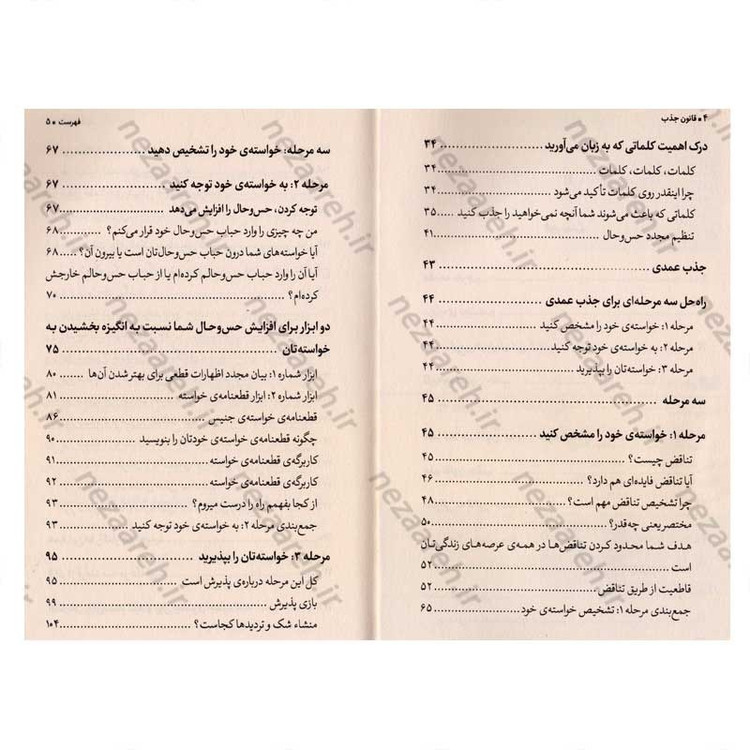 ۴ • قانون جذب
درک اهمیت کلماتی که به زبان می‌آورید ........ ۳۴
کلمات، کلمات، کلمات ........ ۳۴
چرا اینقدر روی کلمات تأکید می‌شود ........ ۳۴
کلماتی که باعث می‌شوند شما آنچه نمی‌خواهید را جذب کنید ..... ۳۵
تنظیم مجدد حس‌وحال ........ ۴۱
جذب عمدی ........ ۴۳
راه‌حل سه مرحله‌ای برای جذب عمدی ........ ۴۴
مرحله ۱: خواسته‌ی خود را مشخص کنید ........ ۴۴
مرحله ۲: به خواسته‌ی خود توجه کنید ........ ۴۴
مرحله ۳: خواسته‌تان را بپذیرید ........ ۴۴
سه مرحله ........ ۴۵
مرحله ۱: خواسته‌ی خود را مشخص کنید ........ ۴۵
تناقض چیست؟ ........ ۴۵
آیا تناقض فایده‌ای هم دارد؟ ........ ۴۶
چرا تشخیص تناقض مهم است؟ ........ ۴۸
مختصر یعنی چه‌قدر؟ ........ ۵۰
هدف شما محدود کردن تناقض‌ها در همه‌ی عرصه‌های زندگی‌تان
است ........ ۵۲
قاطعیت از طریق تناقض ........ ۵۲
جمع‌بندی مرحله ۱: تشخیص خواسته‌ی خود ........ ۶۵
فهرست • ۵
سه مرحله: خواسته‌ی خود را تشخیص دهید ........ ۶۷
مرحله ۲: به خواسته‌ی خود توجه کنید ........ ۶۷
توجه کردن، حس‌وحال را افزایش می‌دهد ........ ۶۷
من چه چیزی را وارد حباب حس‌وحال خود قرار می‌کنم؟ ........ ۶۸
آیا خواسته‌های شما درون حباب حس‌وحال‌تان است یا بیرون آن؟ ..... ۶۸
آیا آن را وارد حباب حس‌وحالم کرده‌ام یا از حباب حس‌وحالم خارجش
کرده‌ام؟ ........ ۷۰
دو ابزار برای افزایش حس‌وحال شما نسبت به انگیزه بخشیدن به
خواسته‌تان ........ ۷۵
ابزار شماره ۱: بیان مجدد اظهارات قطعی برای بهتر شدن آن‌ها ........ ۸۰
ابزار شماره ۲: ابزار قطعنامه‌ی خواسته ........ ۸۱
قطعنامه‌ی خواسته‌ی جنیس ........ ۸۶
چگونه قطعنامه‌ی خواسته‌ی خودتان را بنویسید ........ ۹۰
کاربرگه‌ی قطعنامه‌ی خواسته ........ ۹۱
کاربرگه‌ی قطعنامه‌ی خواسته ........ ۹۲
از کجا بفهمم راه را درست میروم؟ ........ ۹۳
جمع‌بندی مرحله ۲: به خواسته‌ی خود توجه کنید ........ ۹۳
مرحله ۳: خواسته‌تان را بپذیرید ........ ۹۵
کل این مرحله درباره‌ی پذیرش است ........ ۹۵
بازی پذیرش ........ ۹۹
منشاء شک و تردیدها کجاست؟ ........ ۱۰۴
nezaareh.ir